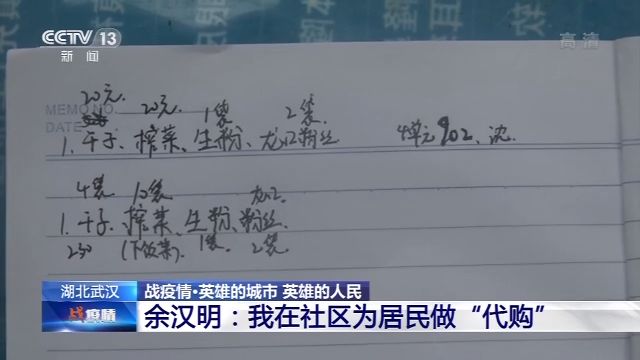 CCTV 13
新闻
高清
20元. 20元. 1袋 2袋.
MEMO NO.
DATE
1. 干子、榨菜、生粉、龙口粉丝 4单元902、沈.
4袋 10袋 龙口.
1. 干子、榨菜、生粉、粉丝.
(下饭菜). 1袋. 2袋
湖北武汉 战疫情·英雄的城市 英雄的人民
战疫情 余汉明：我在社区为居民做“代购”